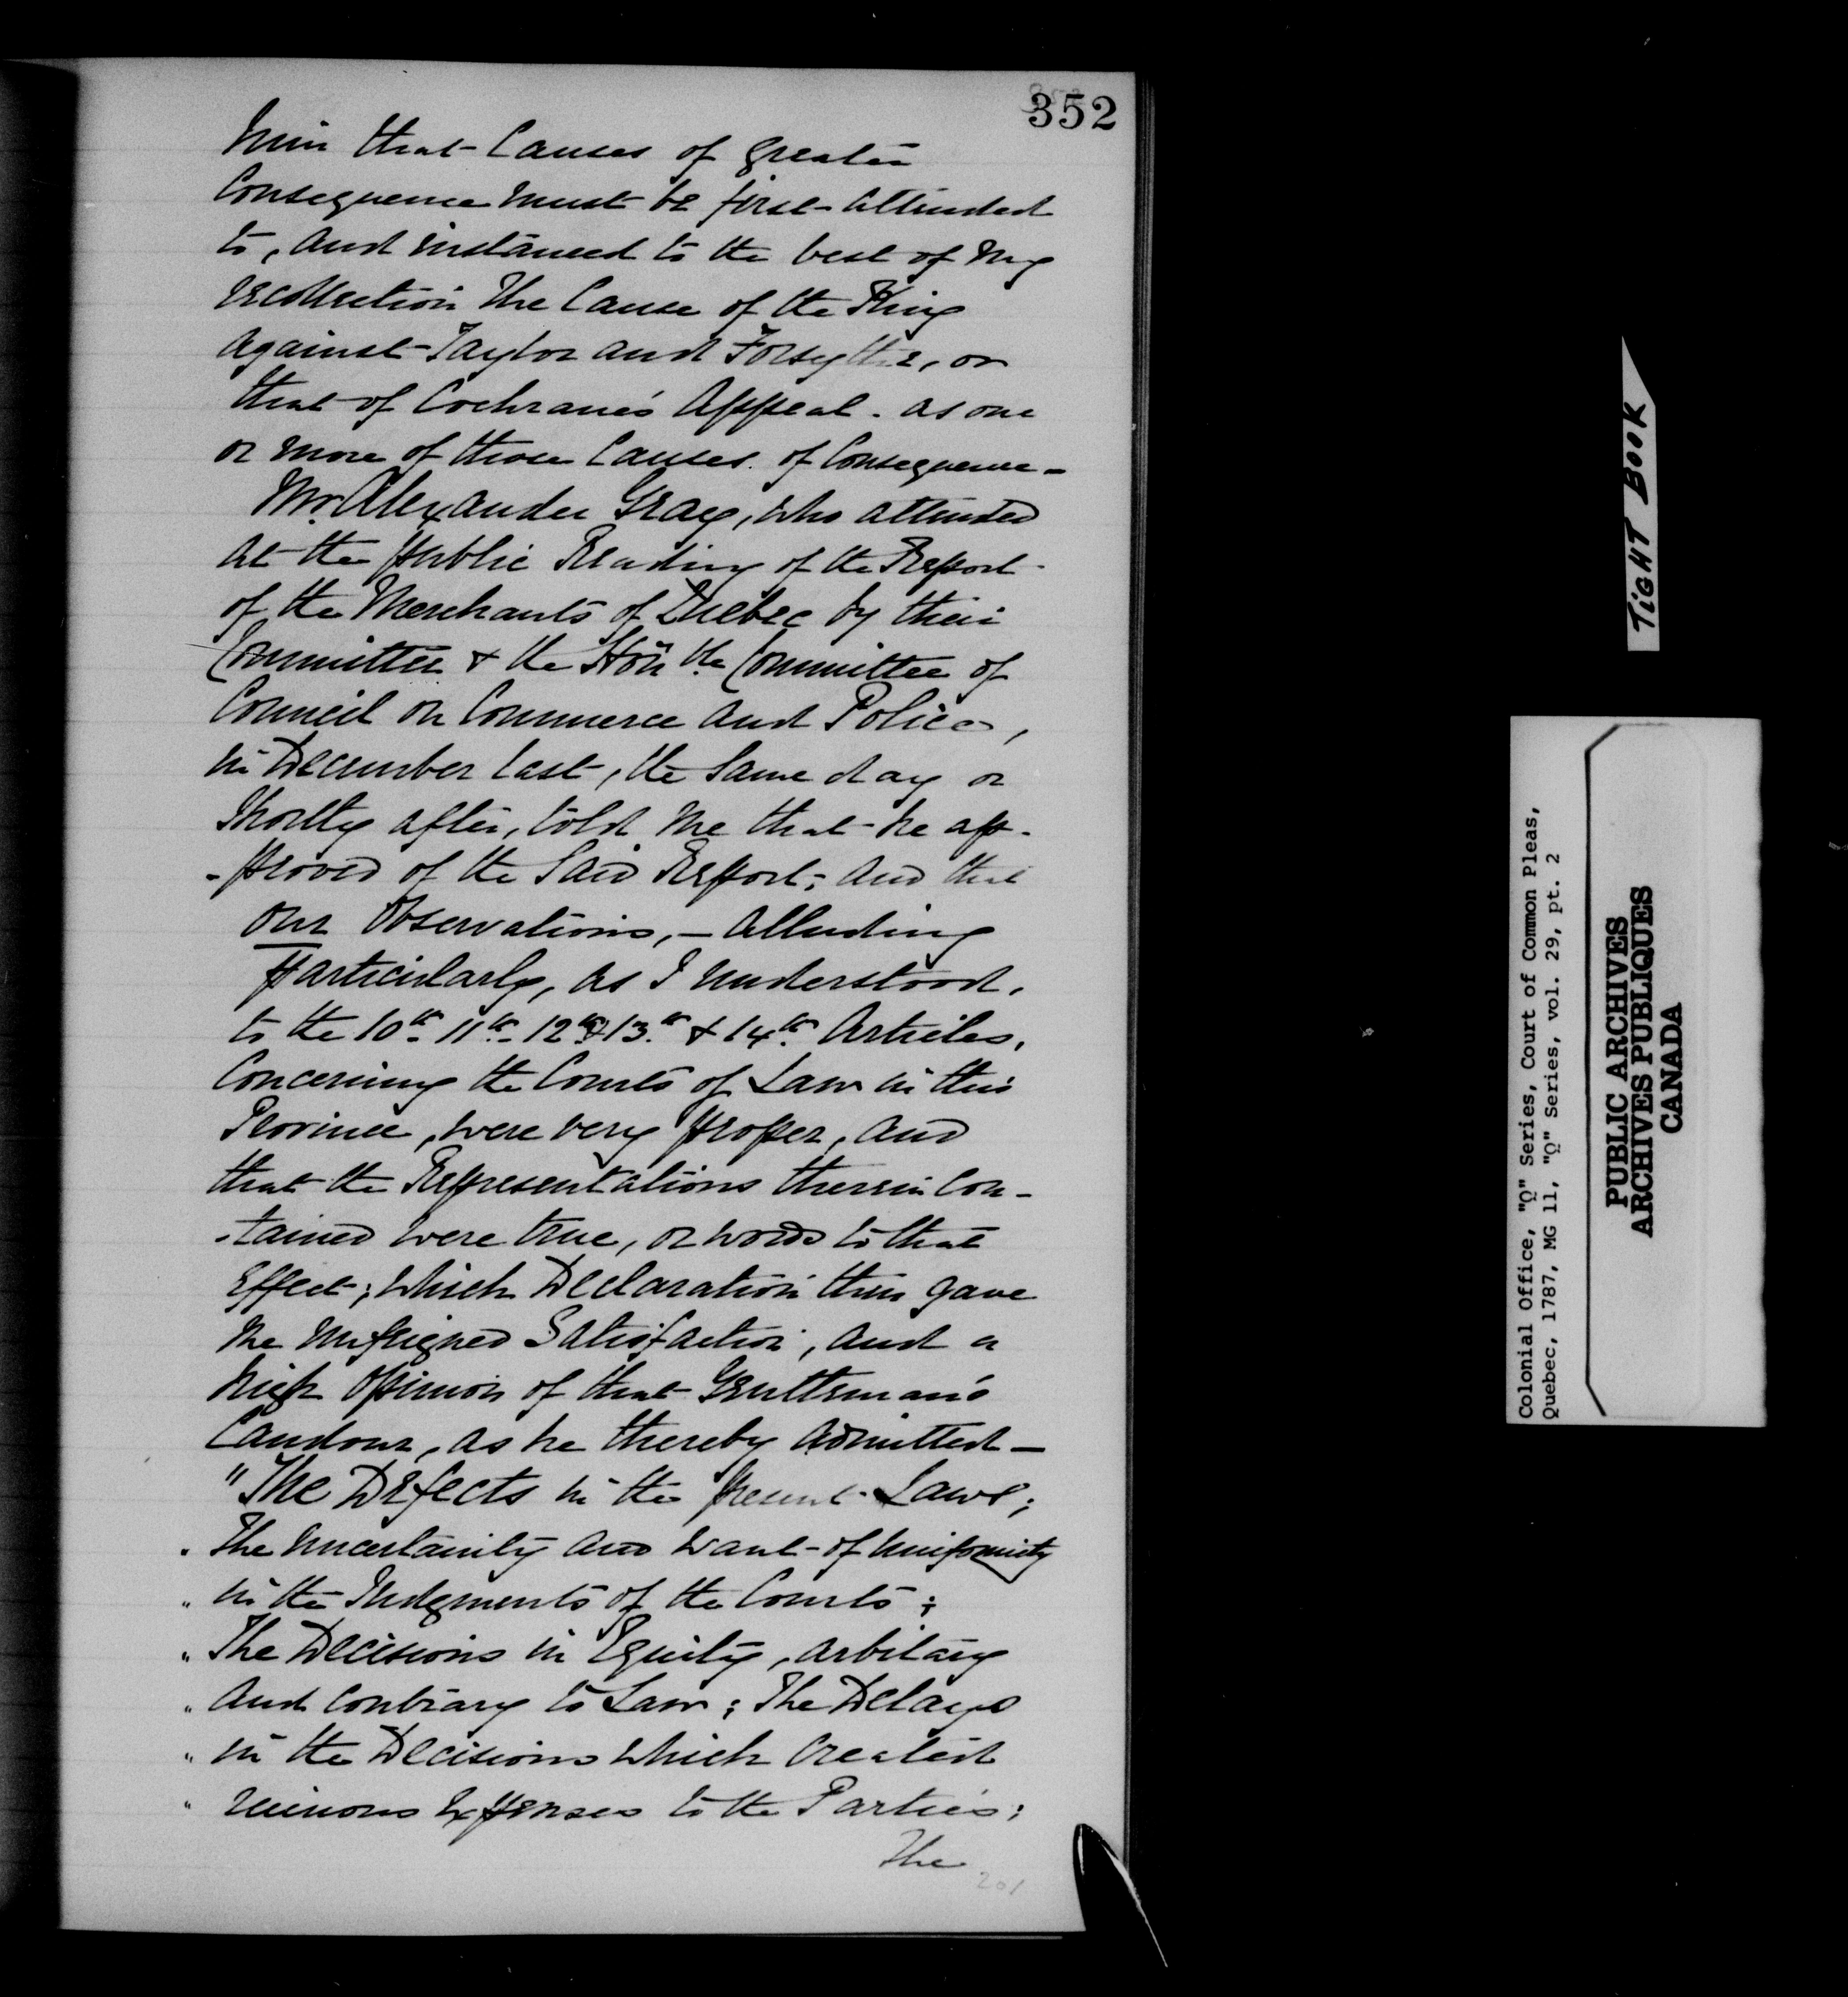 352
him that Causes of greater
Consequence must be first attended
to, and instanced to the best of my
recollection the Cause of the King
against Taylor and Forsythe, or
that of Cochrane's Appeal. as one
or more of those Causes of Consequence -
Mr. Alexander Gray, who attended
at the public Reading of the Report
of the Merchants of Quebec by their
Committee & the Hon ble. Committee of
Council on Commerce and Police,
in December last, the same day or
shortly after, told me that he ap-
-proved of the said Report; and that
our Observations, - alluding
particularly, as I understood,
to the 10th. 11th. 12th. & 13th. & 14th. Articles,
concerning the Courts of Law in this
Province, were very proper, and
that the Representations therein Con-
-tained were true, or words to that
Effect; which Declaration thus gave
me unfeigned Satisfaction, and a
high Opinion of that Gentleman's
Candour, as he thereby admitted -
"The Defects in the present Laws;
" The uncertainty and want of uniformity
" in the Judgments of the Courts;
" The Decisions in Equity, arbitary
" and contrary to Law; The Delays
" in the Decisions which created
" ruinous Expenses to the Parties;
The
201
TIGHT BOOK
Colonial Office, "Q" Series, Court of Common Pleas,
Quebec, 1787, MG 11, "Q" Series, vol. 29, pt. 2
PUBLIC ARCHIVES
ARCHIVES PUBLIQUES
CANADA